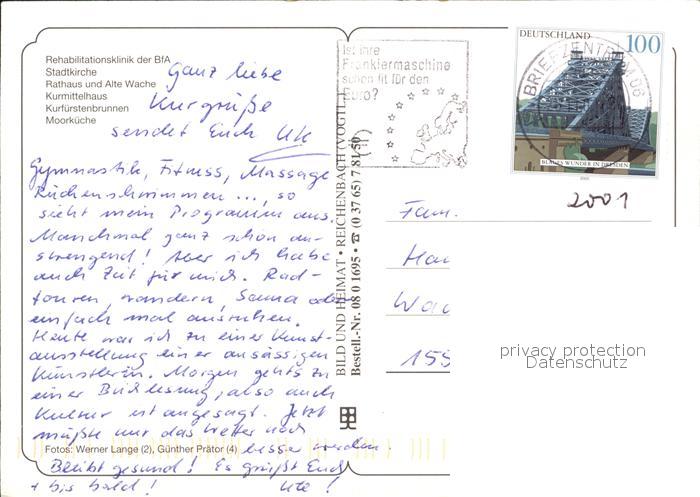 Rehabilitationsklinik der BfA
Stadtkirche
Rathaus und Alte Wache
Kurmittelhaus
Kurfürstenbrunnen
Moorküche
Ganz liebe
Kurgrüße
sendet Euch Ute
Gymnastik, Fitness, Massage
Rückenschwimmen ..., so
sieht mein Programm aus.
Manchmal ganz schön an-
strengend! Aber ich habe
auch Zeit für mich. Rad-
touren, wandern, Sauna oder
einfach mal ausruhen.
Heute war ich zu einer Kunst-
ausstellung einer ansässigen
Künstlerin. Morgen gehts zu
einer Buchlesung, also auch
Kultur ist angesagt. Jetzt
müßte nur das Wetter noch
besser werden.
Fotos: Werner Lange (2), Günther Prätor (4)
Bleibt gesund! Es grüßt Euch
+ bis bald! Ute!
BILD UND HEIMAT • REICHENBACH (VOGTL.)
Bestell.-Nr. 08 0 1695 • ☎ (0 37 65) 7 81 50
Ist ihre
Frankiermaschine
schon fit für den
Euro?
BRIEFZENTRUM
DEUTSCHLAND 100
BLAUES WUNDER IN DRESDEN
2000
2001
Fam.
Hau
Wac
155
privacy protection
Datenschutz